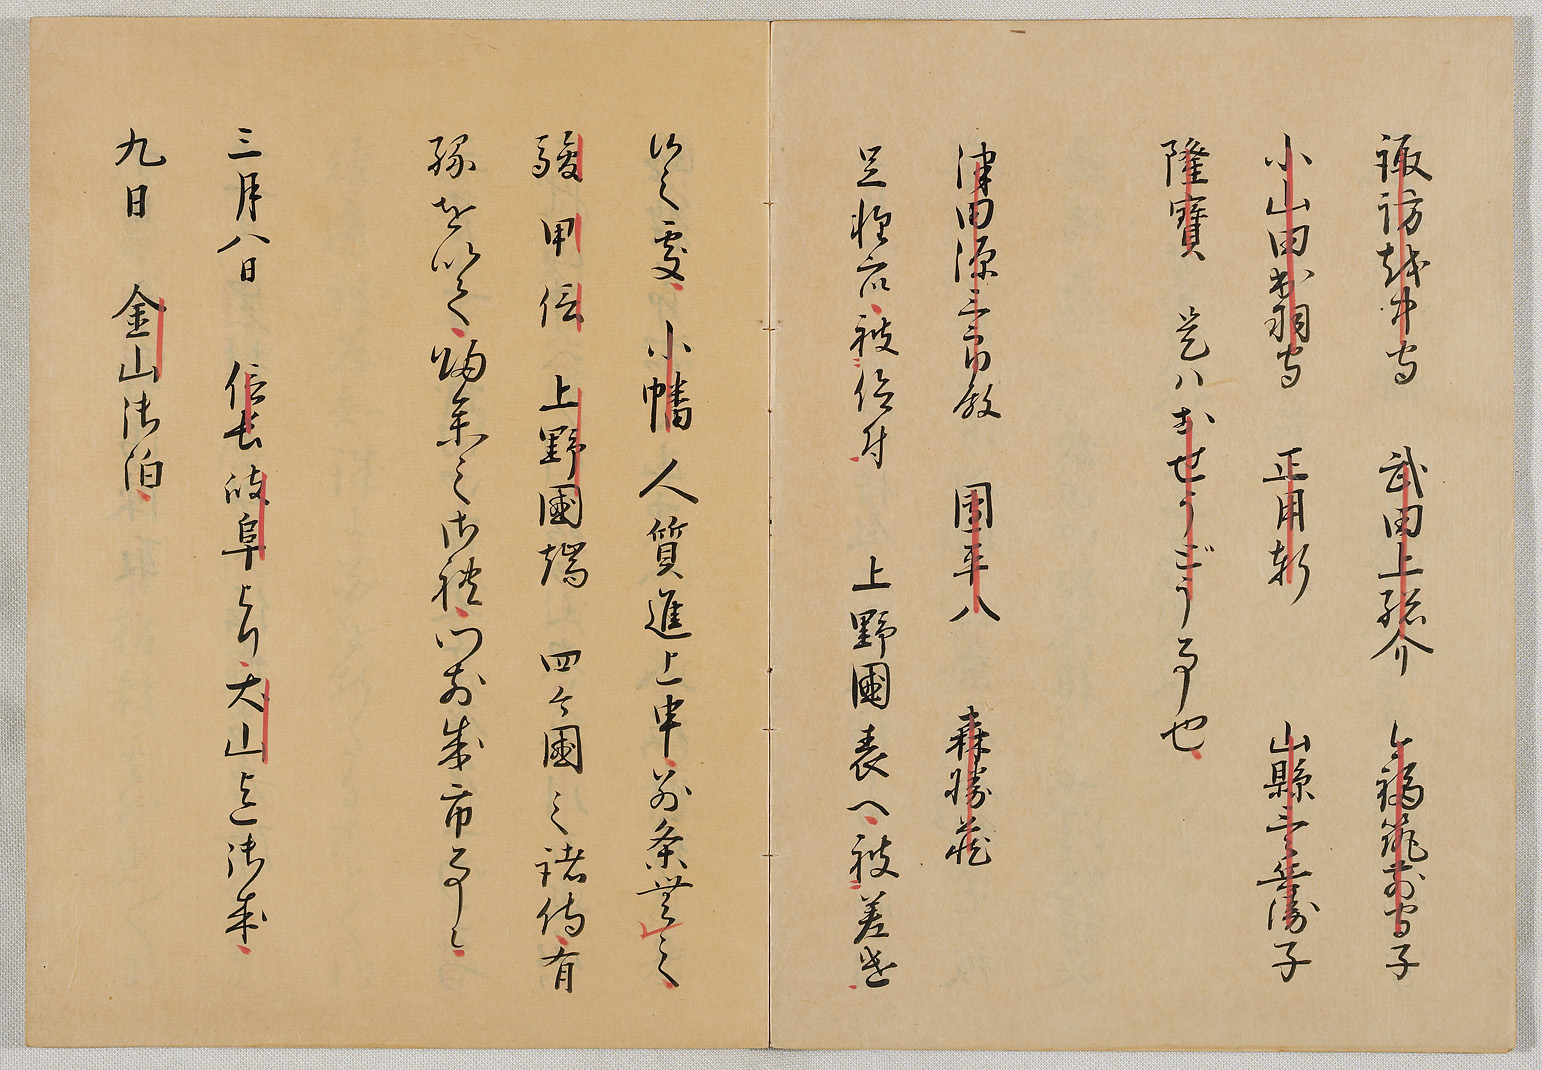 諏訪越中守　武田上総介　今福筑前守子
小山田出羽守　正用軒　山縣三郎兵衛子
隆寶　是ハおせうごう事也
津田源三郎殿　團平八　森勝蔵
足軽衆被仰付　上野國表へ被差遣
候之處小幡人質進上申別条無之
駿甲信上野國端四ケ國之諸侍有
縁を以て帰参之御禮門前成市事候
三月八日　信長岐阜より犬山迄御成
九日　金山御泊